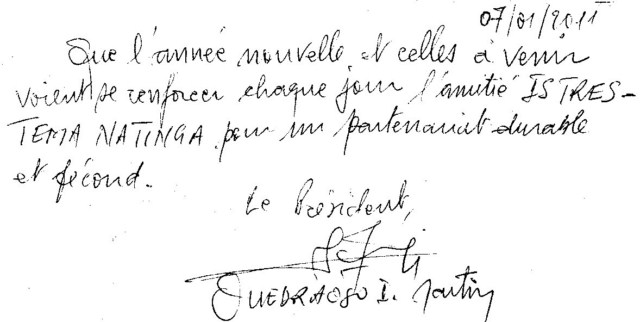 07/01/2011
Que l'année nouvelle et celles à venir
voient se renforcer chaque jour l'amitié ISTRES-
TEMA NATINGA pour un partenariat durable
et fécond.
Le Président,
OUEDRAOGO I. Martin